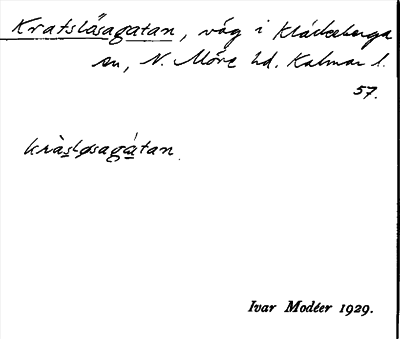 Kratslösagatan, våg i Kläckeberga
sn, N. Möre hd. Kalmar l.
57.
kràsløsagátan.
Ivar Modéer 1929.